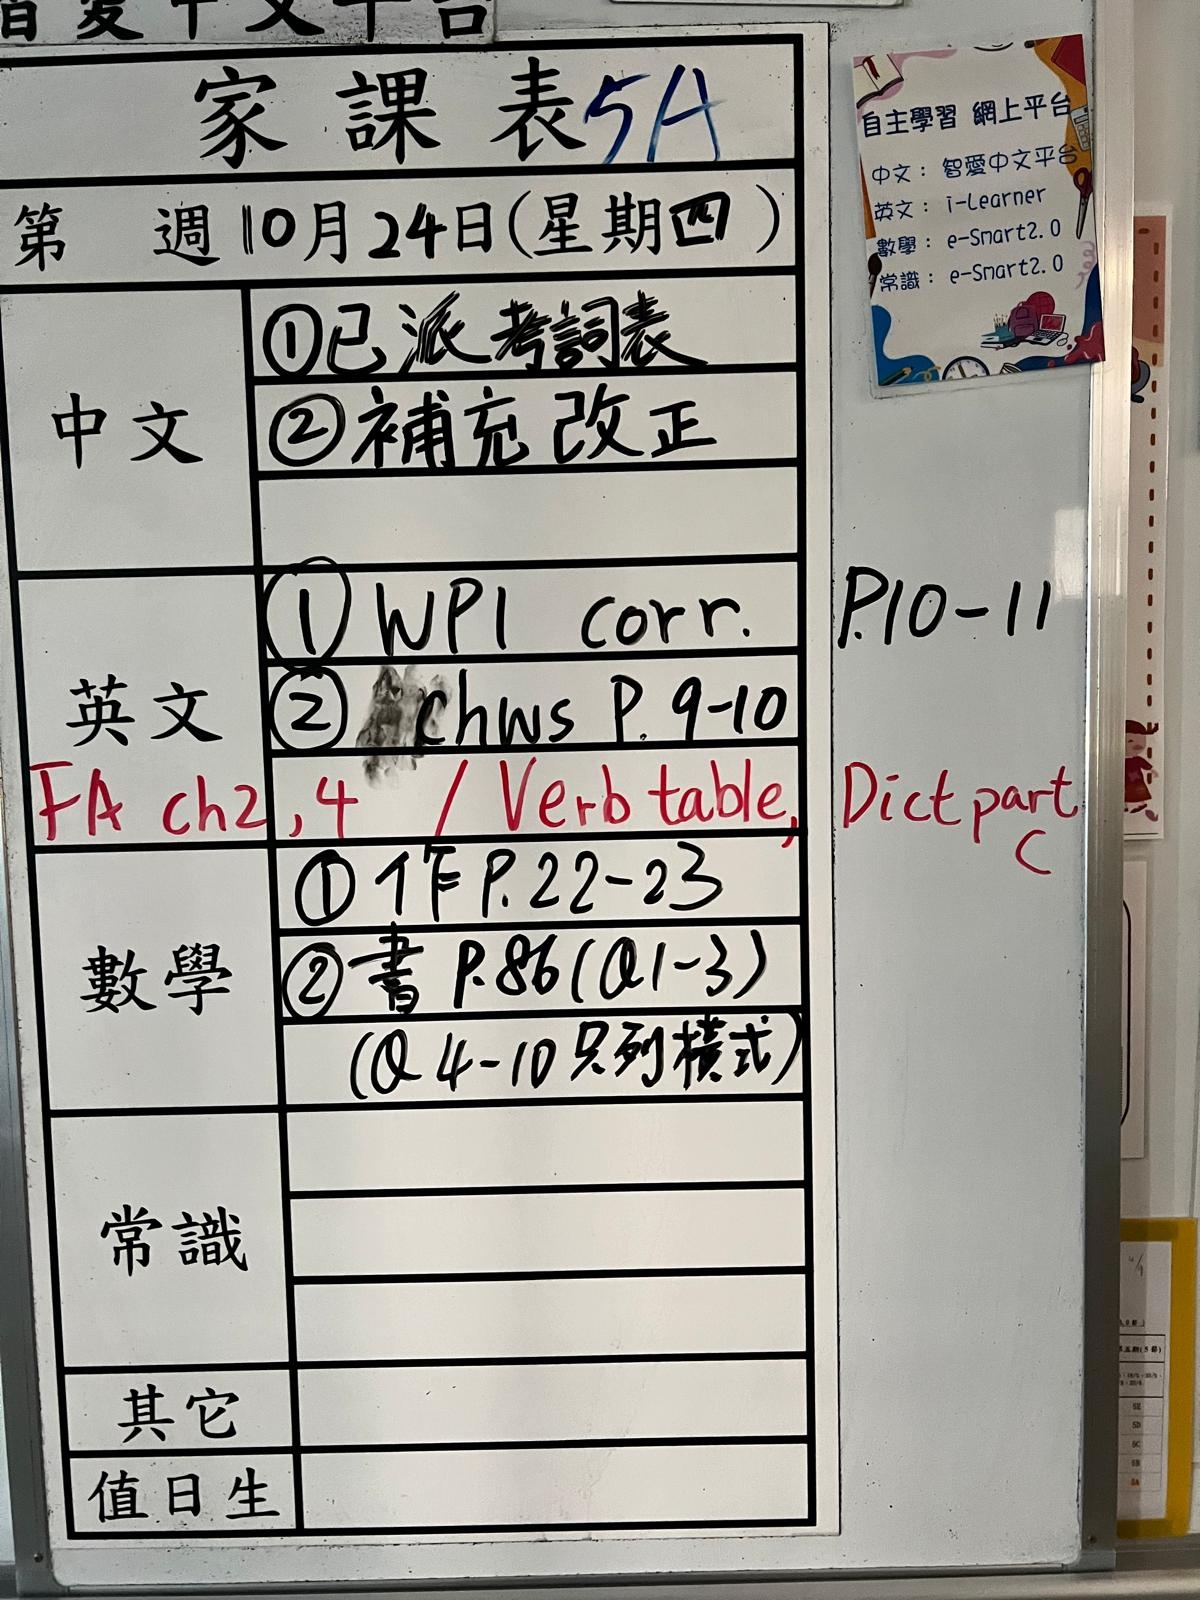 智愛中文平台
家課表 5A
第 週 10月24日(星期四)
中文
①已派考詞表
②補充改正
英文
① WP1 corr. P.10-11
② chws P. 9-10
FA ch2, 4 / Verb table, Dict part C
數學
① 作 P.22-23
② 書 P.86(Q1-3)
(Q4-10只列橫式)
常識
其它
值日生
自主學習 網上平台
中文: 智愛中文平台
英文: i-Learner
數學: e-Smart2.0
常識: e-Smart2.0
5E
5D
5C
5B
5A